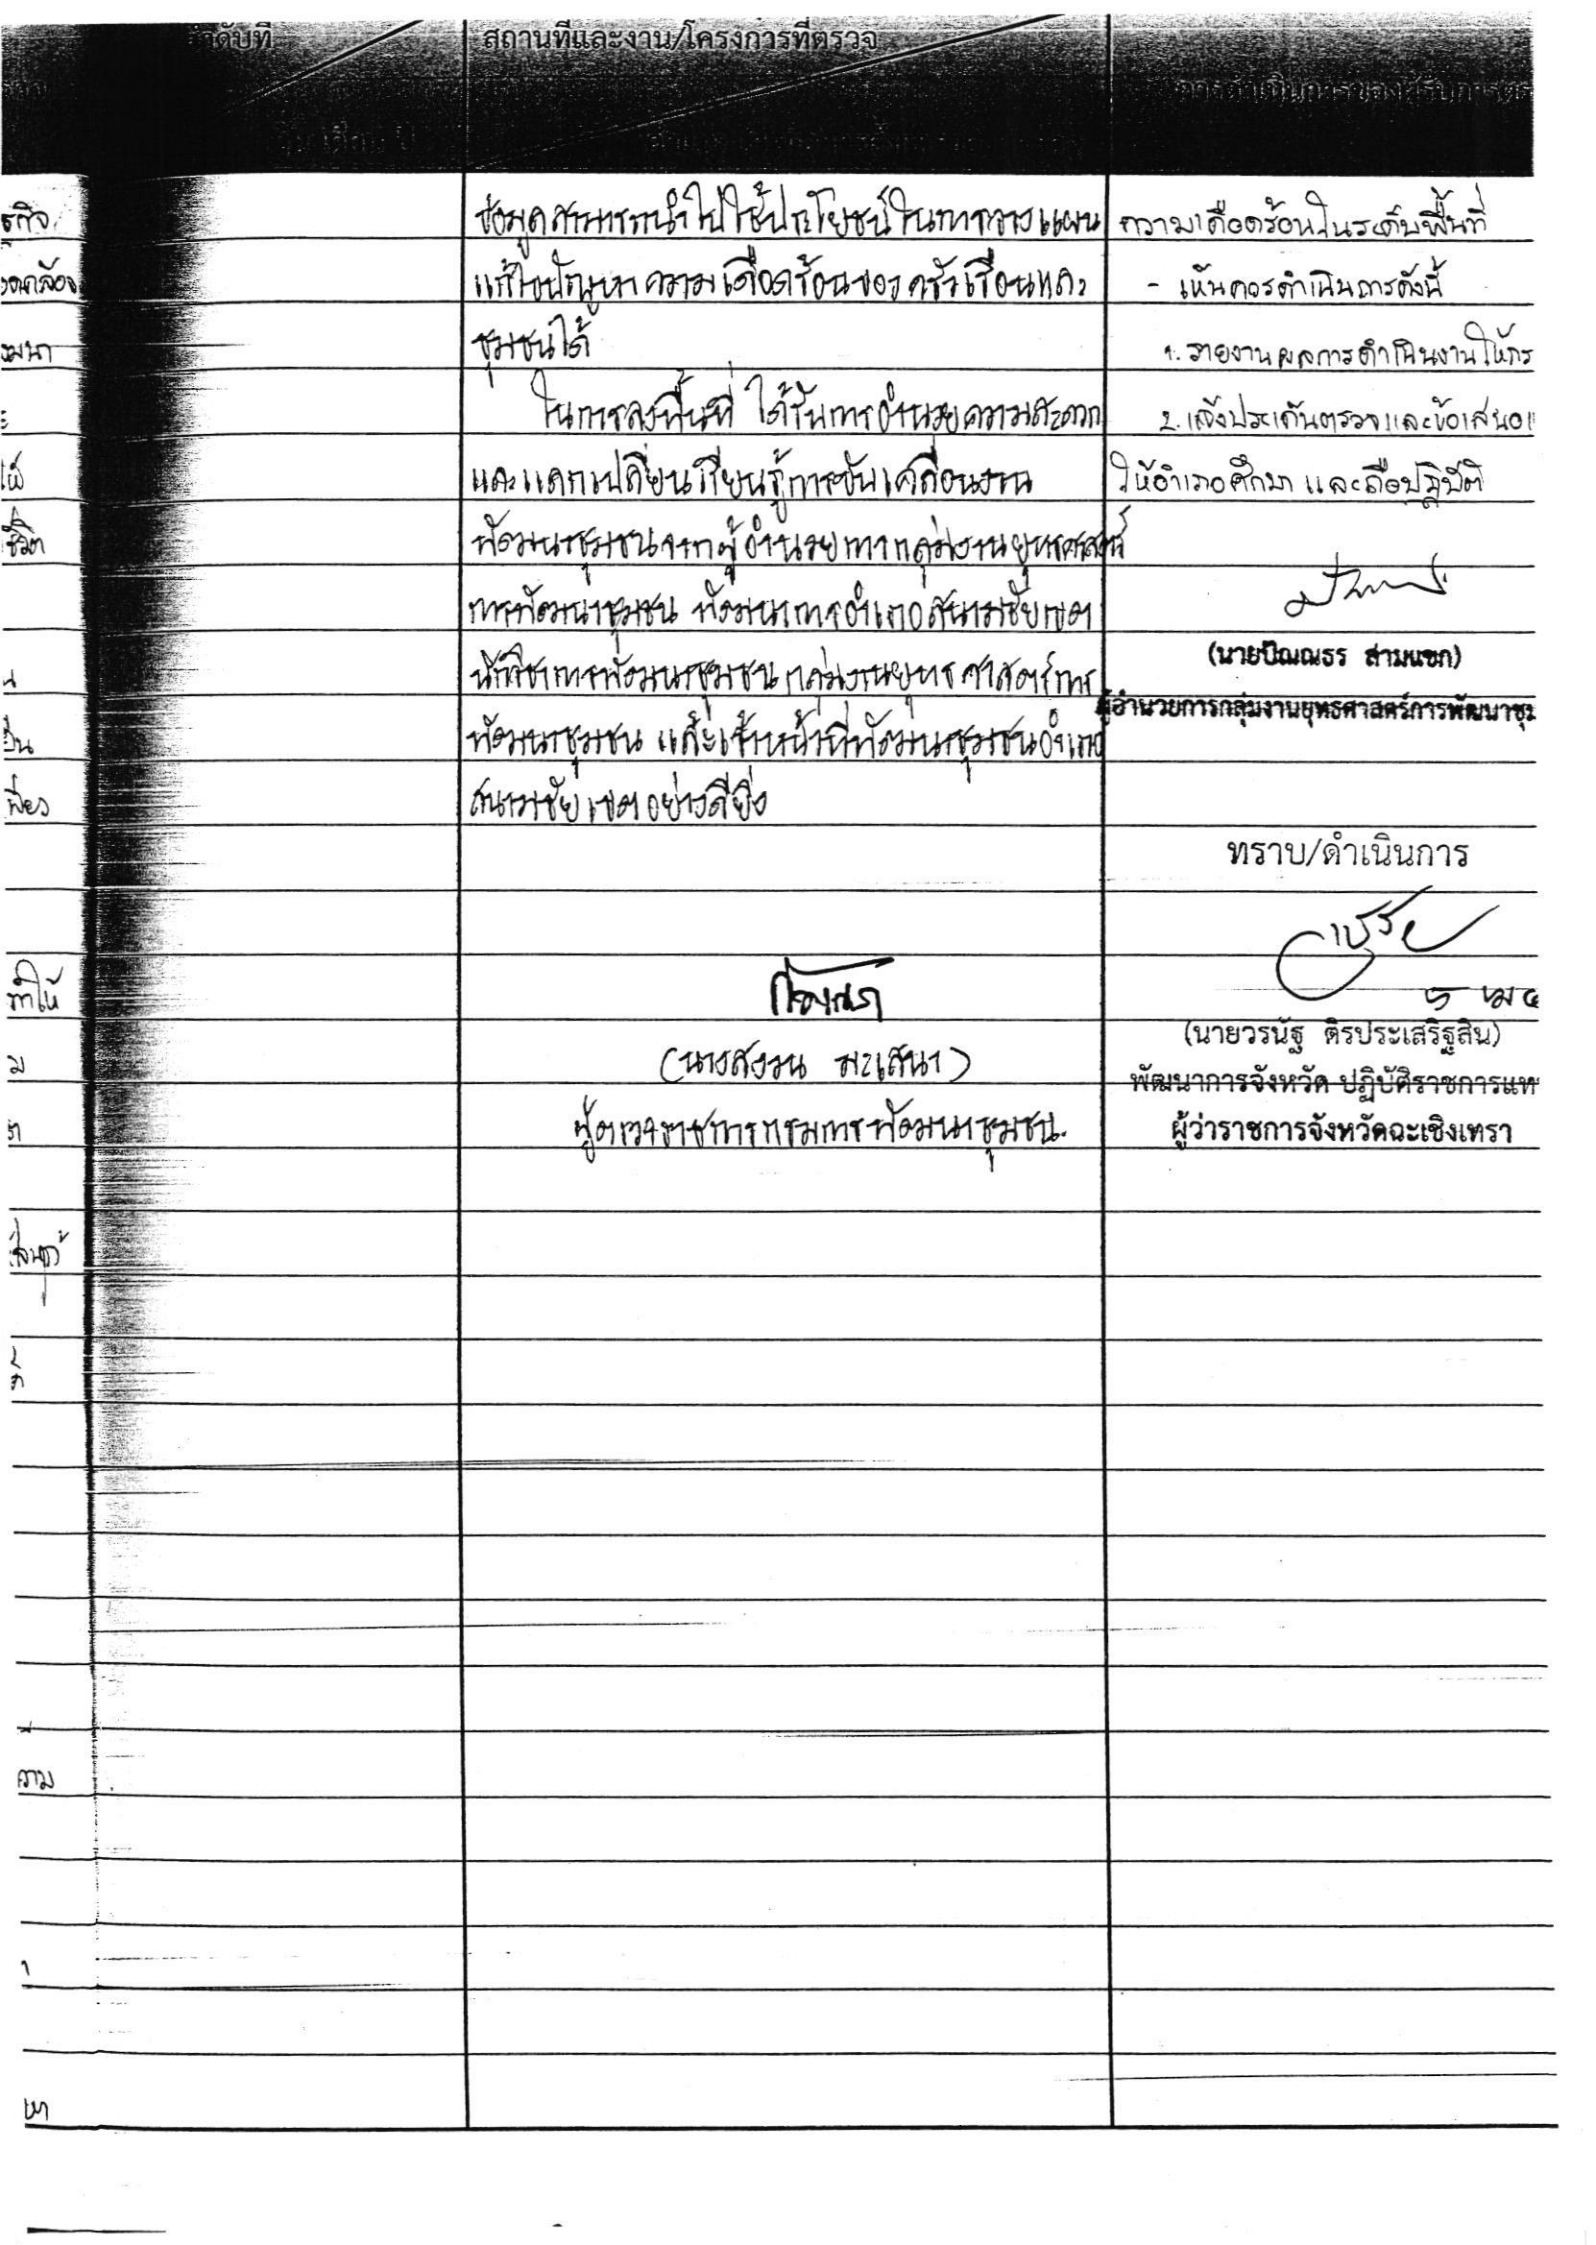 ลำดับที่
สถานที่และงาน/โครงการที่ตรวจ
การดำเนินการของผู้รับการตร
วัน เดือน ปี
ข้อมูลสามารถนำไปใช้ประโยชน์ในการวางแผน
แก้ไขปัญหาความเดือดร้อนของครัวเรือนและ
ชุมชนได้
ในการลงพื้นที่ ได้รับการอำนวยความสะดวก
และแลกเปลี่ยนเรียนรู้การขับเคลื่อนงาน
พัฒนาชุมชนจากผู้อำนวยการกลุ่มงานยุทธศาสตร์
การพัฒนาชุมชน พัฒนาการอำเภอสนามชัยเขต
นักวิชาการพัฒนาชุมชน กลุ่มงานยุทธศาสตร์การ
พัฒนาชุมชน และเจ้าหน้าที่พัฒนาชุมชนอำเภอ
สนามชัยเขตอย่างดียิ่ง
(นางสงวน มะเสนา)
ผู้ตรวจราชการกรมการพัฒนาชุมชน.
ความเดือดร้อนในระดับพื้นที่
- เห็นควรดำเนินการดังนี้
1. รายงานผลการดำเนินงานให้กร
2. แจ้งประเด็นตรวจและข้อเสนอแ
ให้อำเภอศึกษา และถือปฏิบัติ
(นายปัณณธร สามแขก)
ผู้อำนวยการกลุ่มงานยุทธศาสตร์การพัฒนาชุม
ทราบ/ดำเนินการ
(นายวรนัฐ ติรประเสริฐสิน)
พัฒนาการจังหวัด ปฏิบัติราชการแท
ผู้ว่าราชการจังหวัดฉะเชิงเทรา
รกิจ
ให้
ชีวิต
เป็น
เพียง
ทำให้
ความ